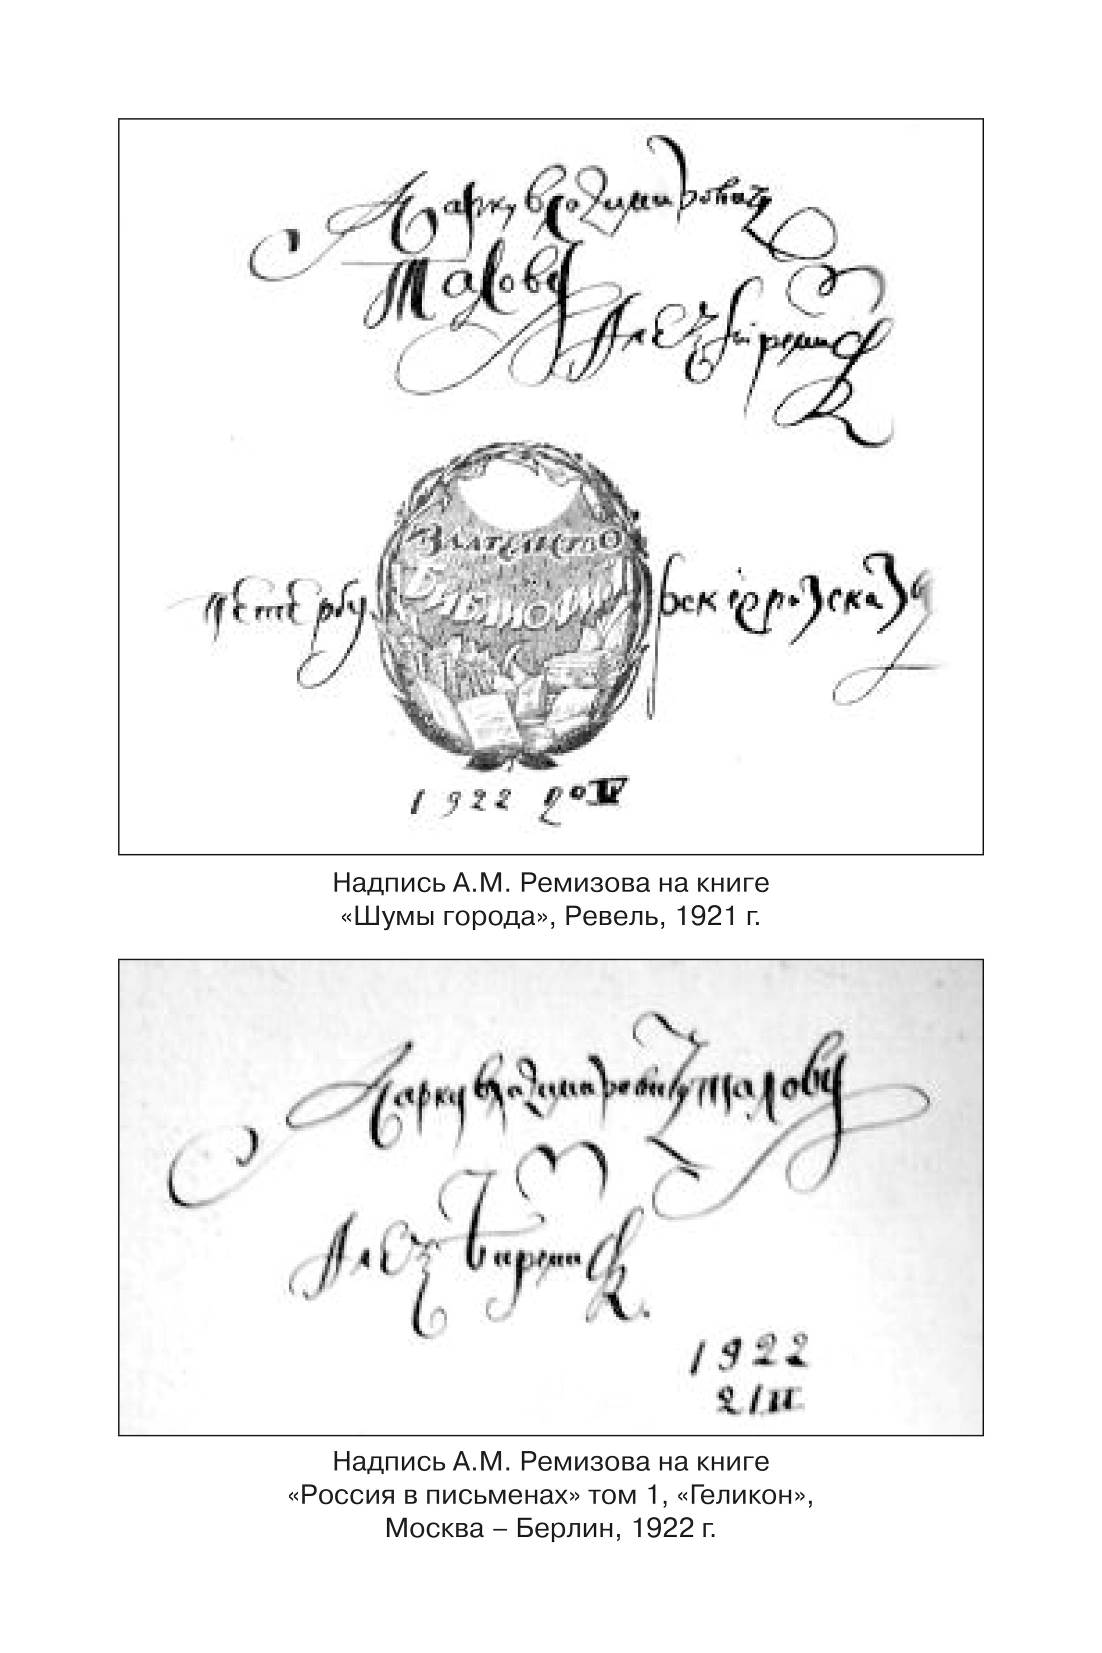 Марку Владимировичу
Талову
Алексей Ремизов
Златенство
Библиофил
Петербу
1922
Надпись А.М. Ремизова на книге
«Шумы города», Ревель, 1921 г.
Марку Владимировичу Талову
Алексей Ремизов
1922
Надпись А.М. Ремизова на книге
«Россия в письменах» том 1, «Геликон»,
Москва – Берлин, 1922 г.